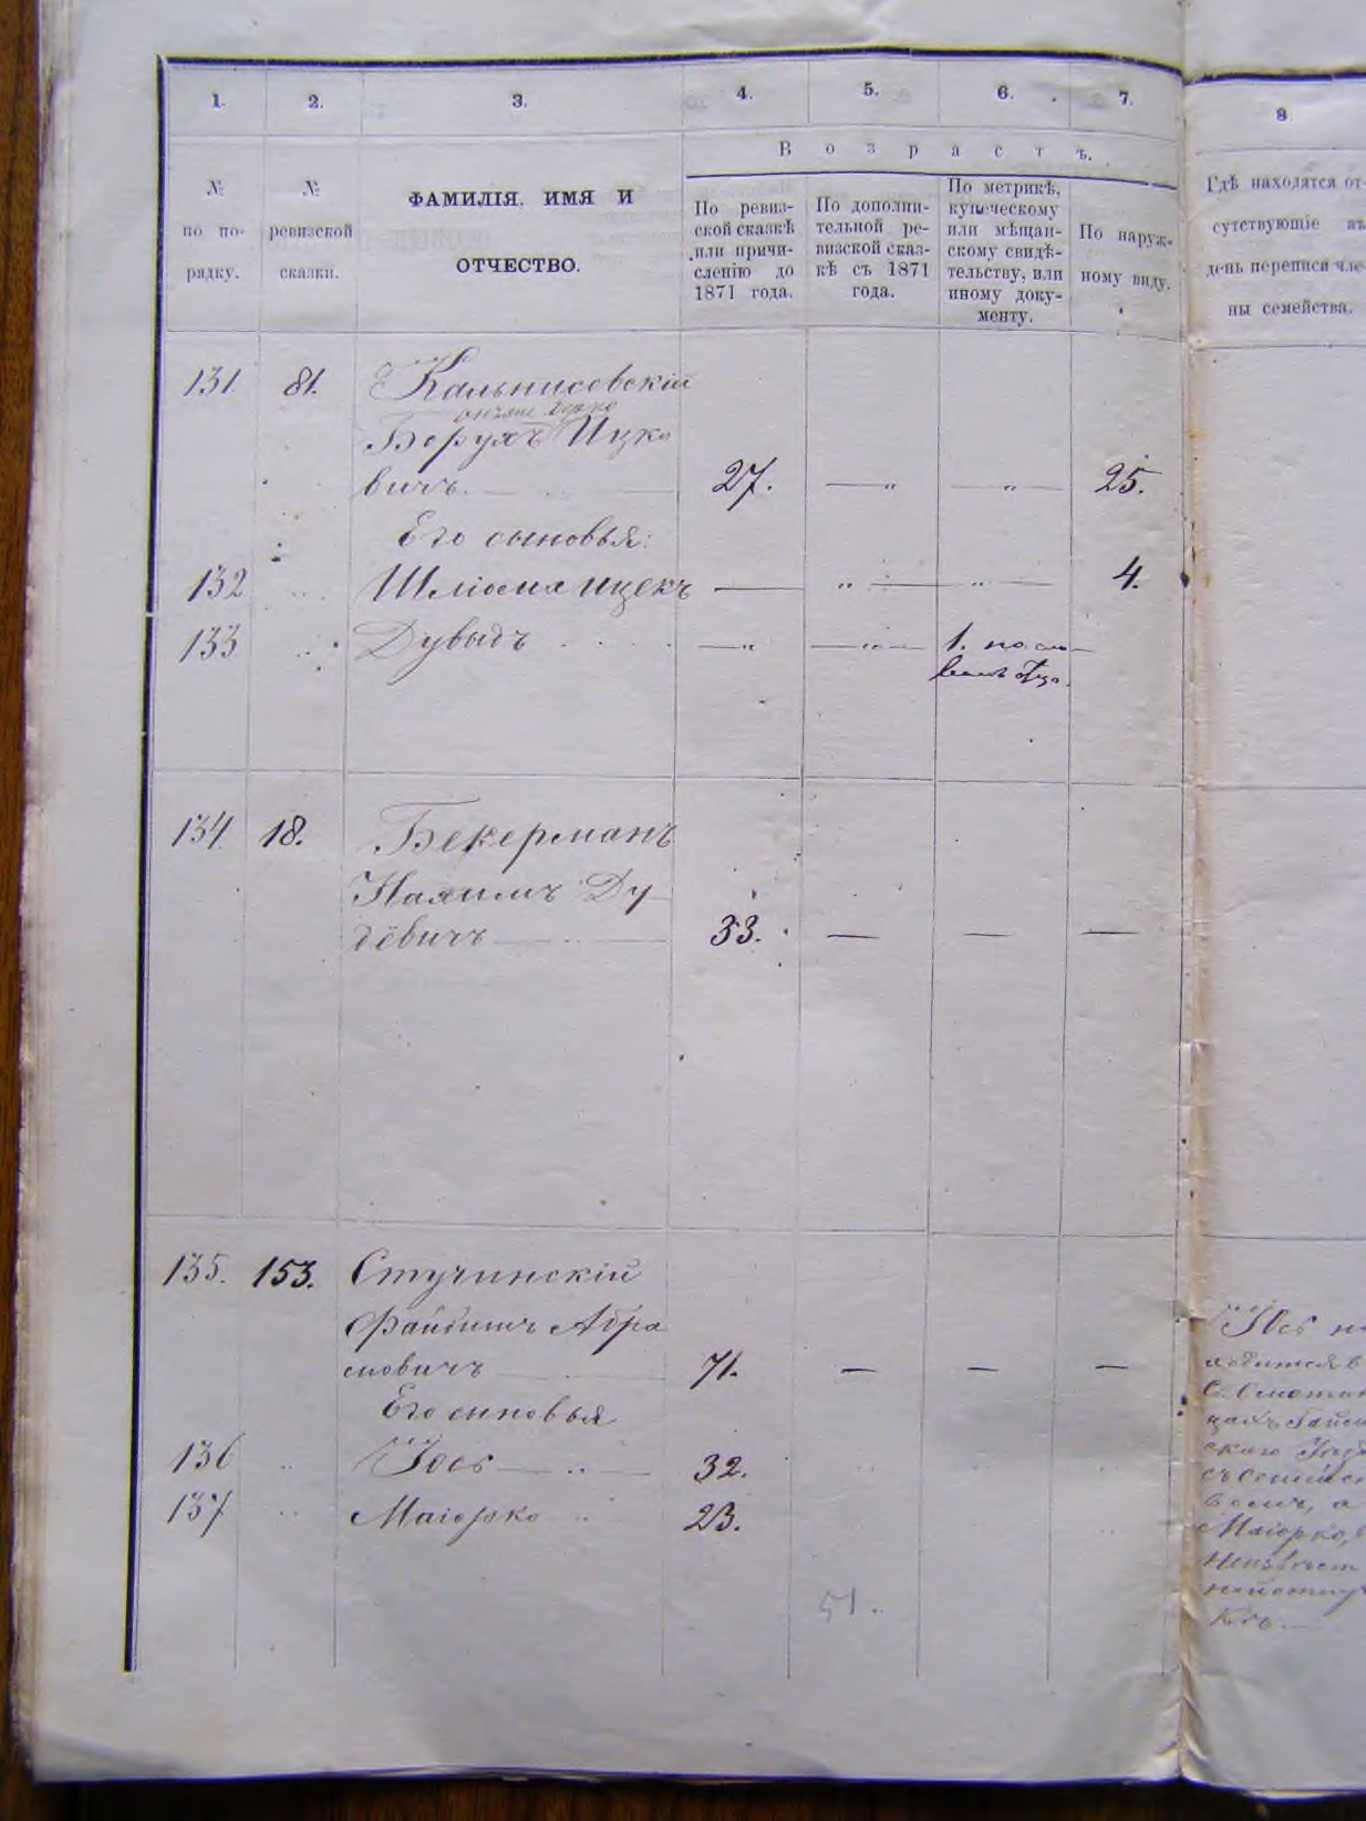 1.
2.
3.
4.
5.
6.
7.
8
Возрастъ.
№ по порядку.
№ ревизской сказки.
ФАМИЛІЯ. ИМЯ И
ОТЧЕСТВО.
По ревиз-
ской сказкѣ
или причи-
сленію до
1871 года.
По дополни-
тельной ре-
визской сказ-
кѣ съ 1871
года.
По метрикѣ,
купеческому
или мѣщан-
скому свидѣ-
тельству, или
иному доку-
менту.
По наруж-
ному виду.
Гдѣ находятся от-
сутствующіе въ
день переписи чле-
ны семейства.
131. 81. Кальнисовскій
Берухъ Ицко
вичъ. 27. — „ — „ — 25.
Его сыновья:
132 „ Шліома Ицекъ — „ — „ — 4.
133 „ Дувыдъ — „ — „ — 1. по сло-
вамъ отца.
134 18. Бекерманъ
Нахимъ Ду
девичъ — „ — 33. — — —
135. 153. Стучинскій
Файвишъ Абра
мовичъ 71. — — —
Его сыновья
136 „ Іось — „ — 32.
137 „ Маіорко „ 23.
51.
Іось на
ходится в
скаго
Маіорко,